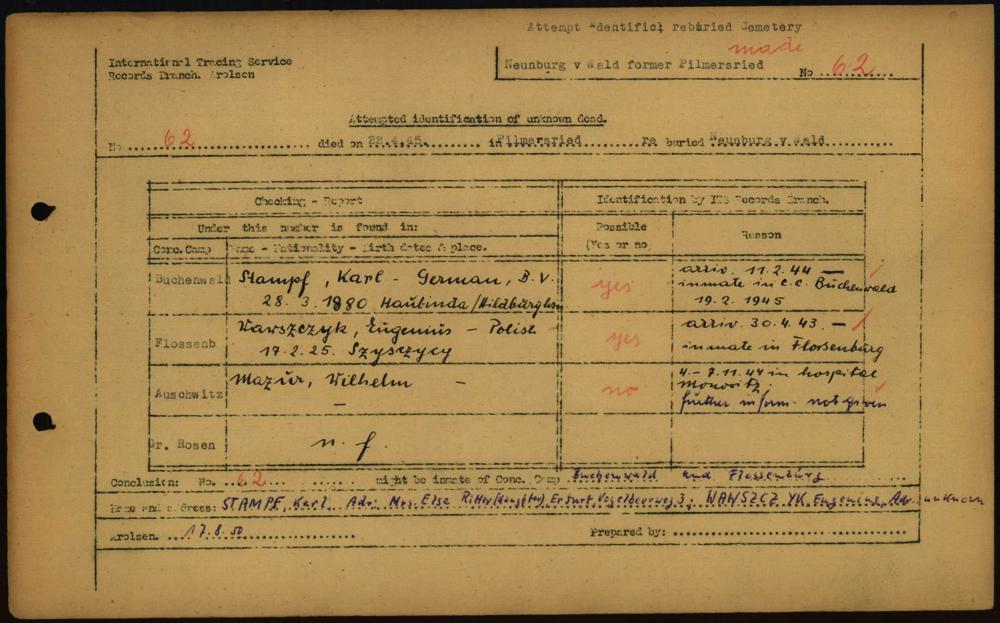 Attempt identific; reburied Cemetery
made
International Tracing Service
Records Branch. Arolsen
Neunburg v Wald former Pilmersried
No 62
Attempted identification of unknown dead.
No 62 died on 22.4.45. in Pilmersried re buried Neunburg v.Wald
Checking - Report
Identification by ITS Records Branch.
Under this number is found in:
Possible (Yes or no)
Reason
Conc. Camp
Name - Nationality - Birth dates & place.
Buchenwald
Stampf, Karl - German, B.V.
28.3.1880 Haubinda/Hildburghsn
yes
arriv. 11.2.44 —
inmate in C.C. Buchenwald
19.2.1945
Flossenb
Wawszczyk, Eugenius - Polish
17.2.25. Szyszczycy
yes
arriv. 30.4.43. —
inmate in Flossenbürg
Auschwitz
Mazur, Wilhelm -
-
no
4.-7.11.44 in hospital
Monowitz.
further inform. not given
Gr. Rosen
n.f.
Conclusion: No. 62 might be inmate of Conc. Camp Buchenwald and Flossenbürg
Home and address: STAMPF, Karl, Adr: Mrs. Else Ritter (daughter) Erfurt, Vogelbeerweg 3; WAWSZCZYK, Eugenius, Adr. unknown
Arolsen. 17.8.50
Prepared by: